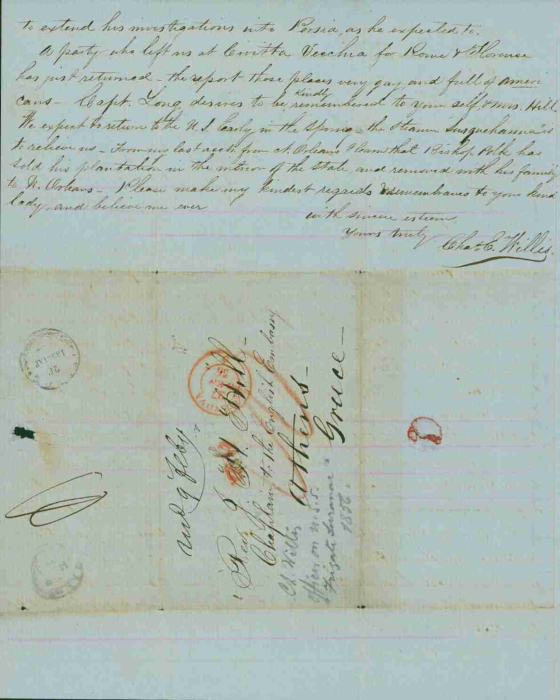 to extend his investigations into Persia, as he expected to.
A party who left us at Civitta Vecchia for Rome & Florence
has just returned - the report those places very gay and full of Ameri
cans - Capt. Long, desires to be kindly remembered to your self & Mrs. Hill
We expect to return to the U.S. Early in the Spring - the Steamer Susquehanna is
to relieve us - From my last acct's from N. Orleans I learn that Bishop Polk has
sold his plantation in the interior of the State, and removed with his family
to N. Orleans - Please make my kindest regards & remembrances to your kind
lady - and believe me ever
with sincere esteem
Yours truly
Chas. C. Willis
recd 9 Feby
Revd J H Hill -
Chaplain to the English Embassy
Athens -
Greece -
Willis
officer on U.S.S.
Frigate Saranac
1856.